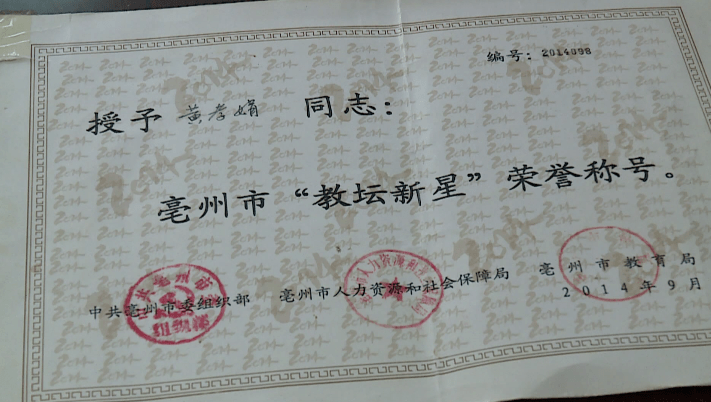 编号：2014098
授予 黄孝娟 同志：
亳州市“教坛新星”荣誉称号。
中共亳州市委组织部 亳州市人力资源和社会保障局 亳州市教育局
2014年9月